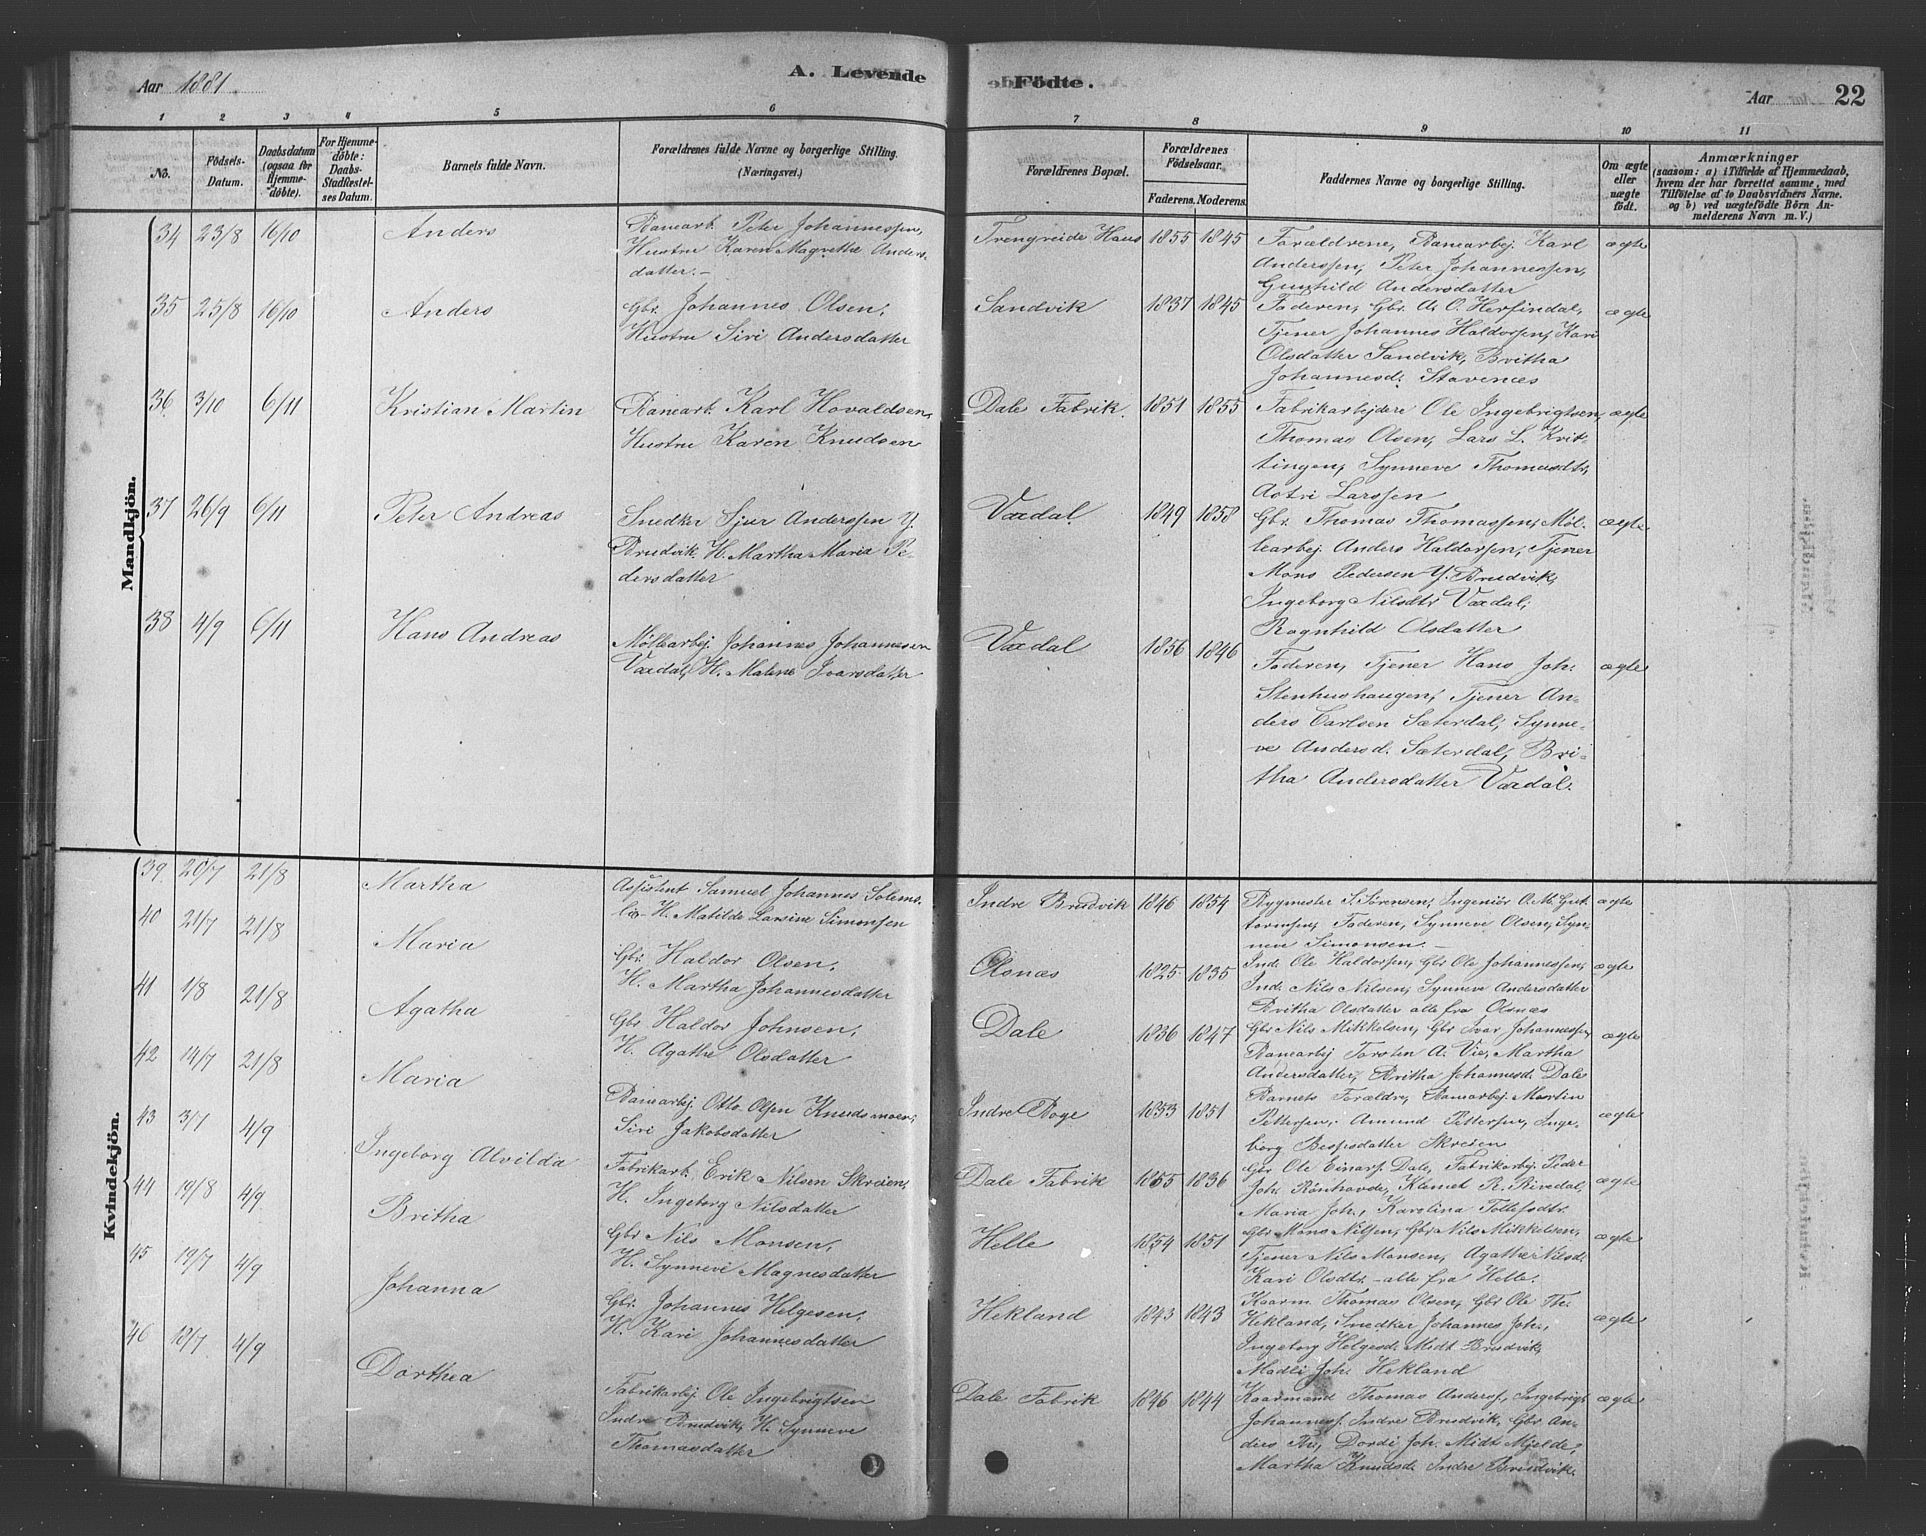 Aar 1881.
A. Levende
Födte.
Aar
22
1 2 3 4 5 6 7 8 9 10 11
No.
Födsels-
Datum.
Daabsdatum
(ogsaa for
Hjemme-
döbte).
For Hjemme-
döbte:
Daabs-
Stadfestel-
ses Datum.
Barnets fulde Navn.
Forældrenes fulde Navne og borgerlige Stilling.
(Næringsvei.)
Forældrenes Bopæl.
Forældrenes
Födselsaar.
Faderens. Moderens.
Faddernes Navne og borgerlige Stilling.
Om ægte
eller
uægte
födt.
Anmærkninger
(saasom: a) i Tilfælde af Hjemmedaab,
hvem der har forrettet samme, med
Tilföielse af to Daabsvidners Navne.
og b) ved uægtefödte Börn An-
melderens Navn m. V.)
Mandkjön.
34 23/8 16/10 Anders
Banearb. Peter Johannessen,
Hustru Karen Magrethe Anders-
datter.-
Trengreide Haus 1855 1845
Forældrene, Banearbej. Karl
Anderssen, Peter Johannessen,
Gunhild Andersdatter
ægte
35 25/8 16/10 Anders
Gbr. Johannes Olsen,
Hustru Siri Andersdatter
Sandvik 1837 1845
Faderen, Gbr. A. O. Herfindal,
Tjener Johannes Haldorsen, Kari
Olsdatter Sandvik, Britha
Johannesd. Stavenæs
ægte
36 3/10 6/11 Kristian Martin
Banearb. Karl Hovaldsen,
Hustru Karen Knudsen
Dale Fabrik. 1851 1855
Fabrikarbejdere Ole Ingebrigtsen,
Thomas Olsen, Lars L. Kvit-
tingen, Synneve Thomasdtr,
Astri Larssen
ægte
37 26/9 6/11 Peter Andreas
Snedker Sjur Anderssen Y.
Brudvik, H. Martha Maria Pe-
dersdatter
Vaxdal. 1849 1858
Gbr. Thomas Thomassen, Møl-
learbej. Anders Haldorsen, Tjener
Mons Pedersen Y. Brudvik,
Ingeborg Nilsdtr Vaxdal,
Ragnhild Olsdatter
ægte
38 4/9 6/11 Hans Andreas
Møllearbej. Johannes Johannesen
Vaxdal, H. Malene Ivarsdatter
Vaxdal 1856 1846
Faderen, Tjener Hans Joh.
Stenhushaugen, Tjener An-
ders Carlsen Sæterdal, Synne-
ve Andersd. Sæterdal, Bri-
tha Andersdatter Vaxdal.
ægte
Kvindekjön.
39 20/7 21/8 Martha
Assistent Samuel Johannes Solems-
lie- H. Matilde Larsine Simonsen
Indre Brudvik 1846 1854
Bygmester S. Sørensen, Ingeniør O. M. Gut-
tormsen, Faderen, Synneve Olsen, Syn-
neve Simonsen.-
ægte
40 21/7 21/8 Maria
Gbr. Haldor Olsen,
H. Martha Johannesdatter
Olsnæs 1825 1835
Ind. Ole Haldorsen, Gbr Ole Johannessen,
Ind. Nils Nilsen, Synneve Andersdatter
Britha Olsdatter alle fra Olsnæs
ægte
41 1/8 21/8 Agatha
Gbr Haldor Johnsen,
H. Agathe Olsdatter
Dale 1836 1847
Gbr Nils Mikkelsen, Gbr Ivar Johannessen,
Banearbej Torsten A. Vie, Martha
Andersdatter, Britha Johannesd. Dale
ægte
42 14/7 21/8 Maria
Banearbej. Otto Olsen Knudsmoen,
Siri Jakobsdatter
Indre Boge 1853 1851
Barnets Forældre, Banearbej Martin
Pettersen, Amund Pettersen, Inge-
borg Bessesdatter Skreien
ægte
43 3/7 4/9 Ingeborg Alvilda
Fabrikarb. Erik Nilsen Skreien,
H. Ingeborg Nilsdatter
Dale Fabrik 1855 1836
Gbr Ole Einars. Dale, Fabrikarbej. Peder
Joh. Rønhovde, Klemet R. Rivedal,
Maria Joh., Karolina Tollefsdtr.
ægte
44 19/8 4/9 Britha
Gbr Nils Monsen,
H. Synneve Magnesdatter
Helle 1854 1851
Gbr Mons Nilsen, Gbr Nils Mikkelsen,
Tjener Nils Monsen, Agathe Nilsd.
Kari Olsdtr. - alle fra Helle.
ægte
45 19/7 4/9 Johanna
Gbr. Johannes Helgesen,
H. Kari Johannesdatter
Hekland 1843 1843
Kaarm. Thomas Olsen, Gbr Ole Th.
Hekland, Snedker Johannes Joh.,
Ingeborg Helgesd. Midt Brudvik,
Madli Joh. Hekland
ægte
46 18/7 4/9 Dorthea
Fabrikarbej Ole Ingebrigtsen
Indre Brudvik, H. Synneve
Thomasdatter
Dale Fabrik 1846 1844
Kaarmand Thomas Anders., Ingebrigt
Johanness. Indre Brudvik, Gbr An-
ders Th., Dordi Joh. Midt Mjelde,
Martha Knudsd. Indre Brudvik.
ægte